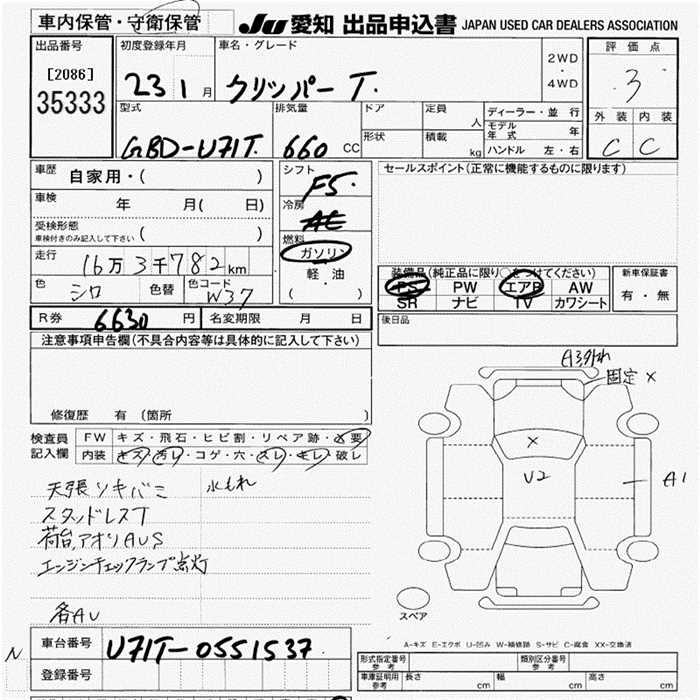 車内保管・守衛保管
JU 愛知 出品申込書 JAPAN USED CAR DEALERS ASSOCIATION
出品番号
[2086]
35333
初度登録年月
23 1 月
車名・グレード
クリッパー T.
2WD
・
4WD
評価点
3
外装 内装
C C
型式
GBD-U71T
排気量
660 CC
ドア
形状
定員
人
積載
kg
ディーラー・並行
モデル年式 年
ハンドル 左・右
車歴
自家用・( )
車検
年 月( 日)
受検形態
車検付きのみ記入して下さい ( )
走行
16万3千782km
色
シロ
色替
色コード
W37
シフト
F5.
冷房
AC
燃料
ガソリン
・
軽油
( )
セールスポイント(正常に機能するものに限ります)
装備品(純正品に限り○をつけてください)
PS PW エアB AW
SR ナビ TV カワシート
新車保証書
有・無
R券 6630 円
名変期限 月 日
後日品
注意事項申告欄(不具合内容等は具体的に記入して下さい)
修復歴 有 (箇所 )
検査員
記入欄
FW キズ・飛石・ヒビ割・リペア跡・必要
内装 キズ・汚レ・コゲ・穴・スレ・キレ・破レ
天張ツキバミ 水もれ
スタッドレスT
荷台,アオリAUS
エンジンチェックランプ点灯
各AU
A3 外れ
固定 X
X
U2
A1
スペア
A-キズ E-エクボ U-凹み W-補修跡 S-サビ C-腐食 XX-交換済
N
車台番号 U71T-0551537
登録番号
形式指定番号
参考
類別区分番号
参考
車庫証明用
参考
長さ cm 幅 cm 高さ cm